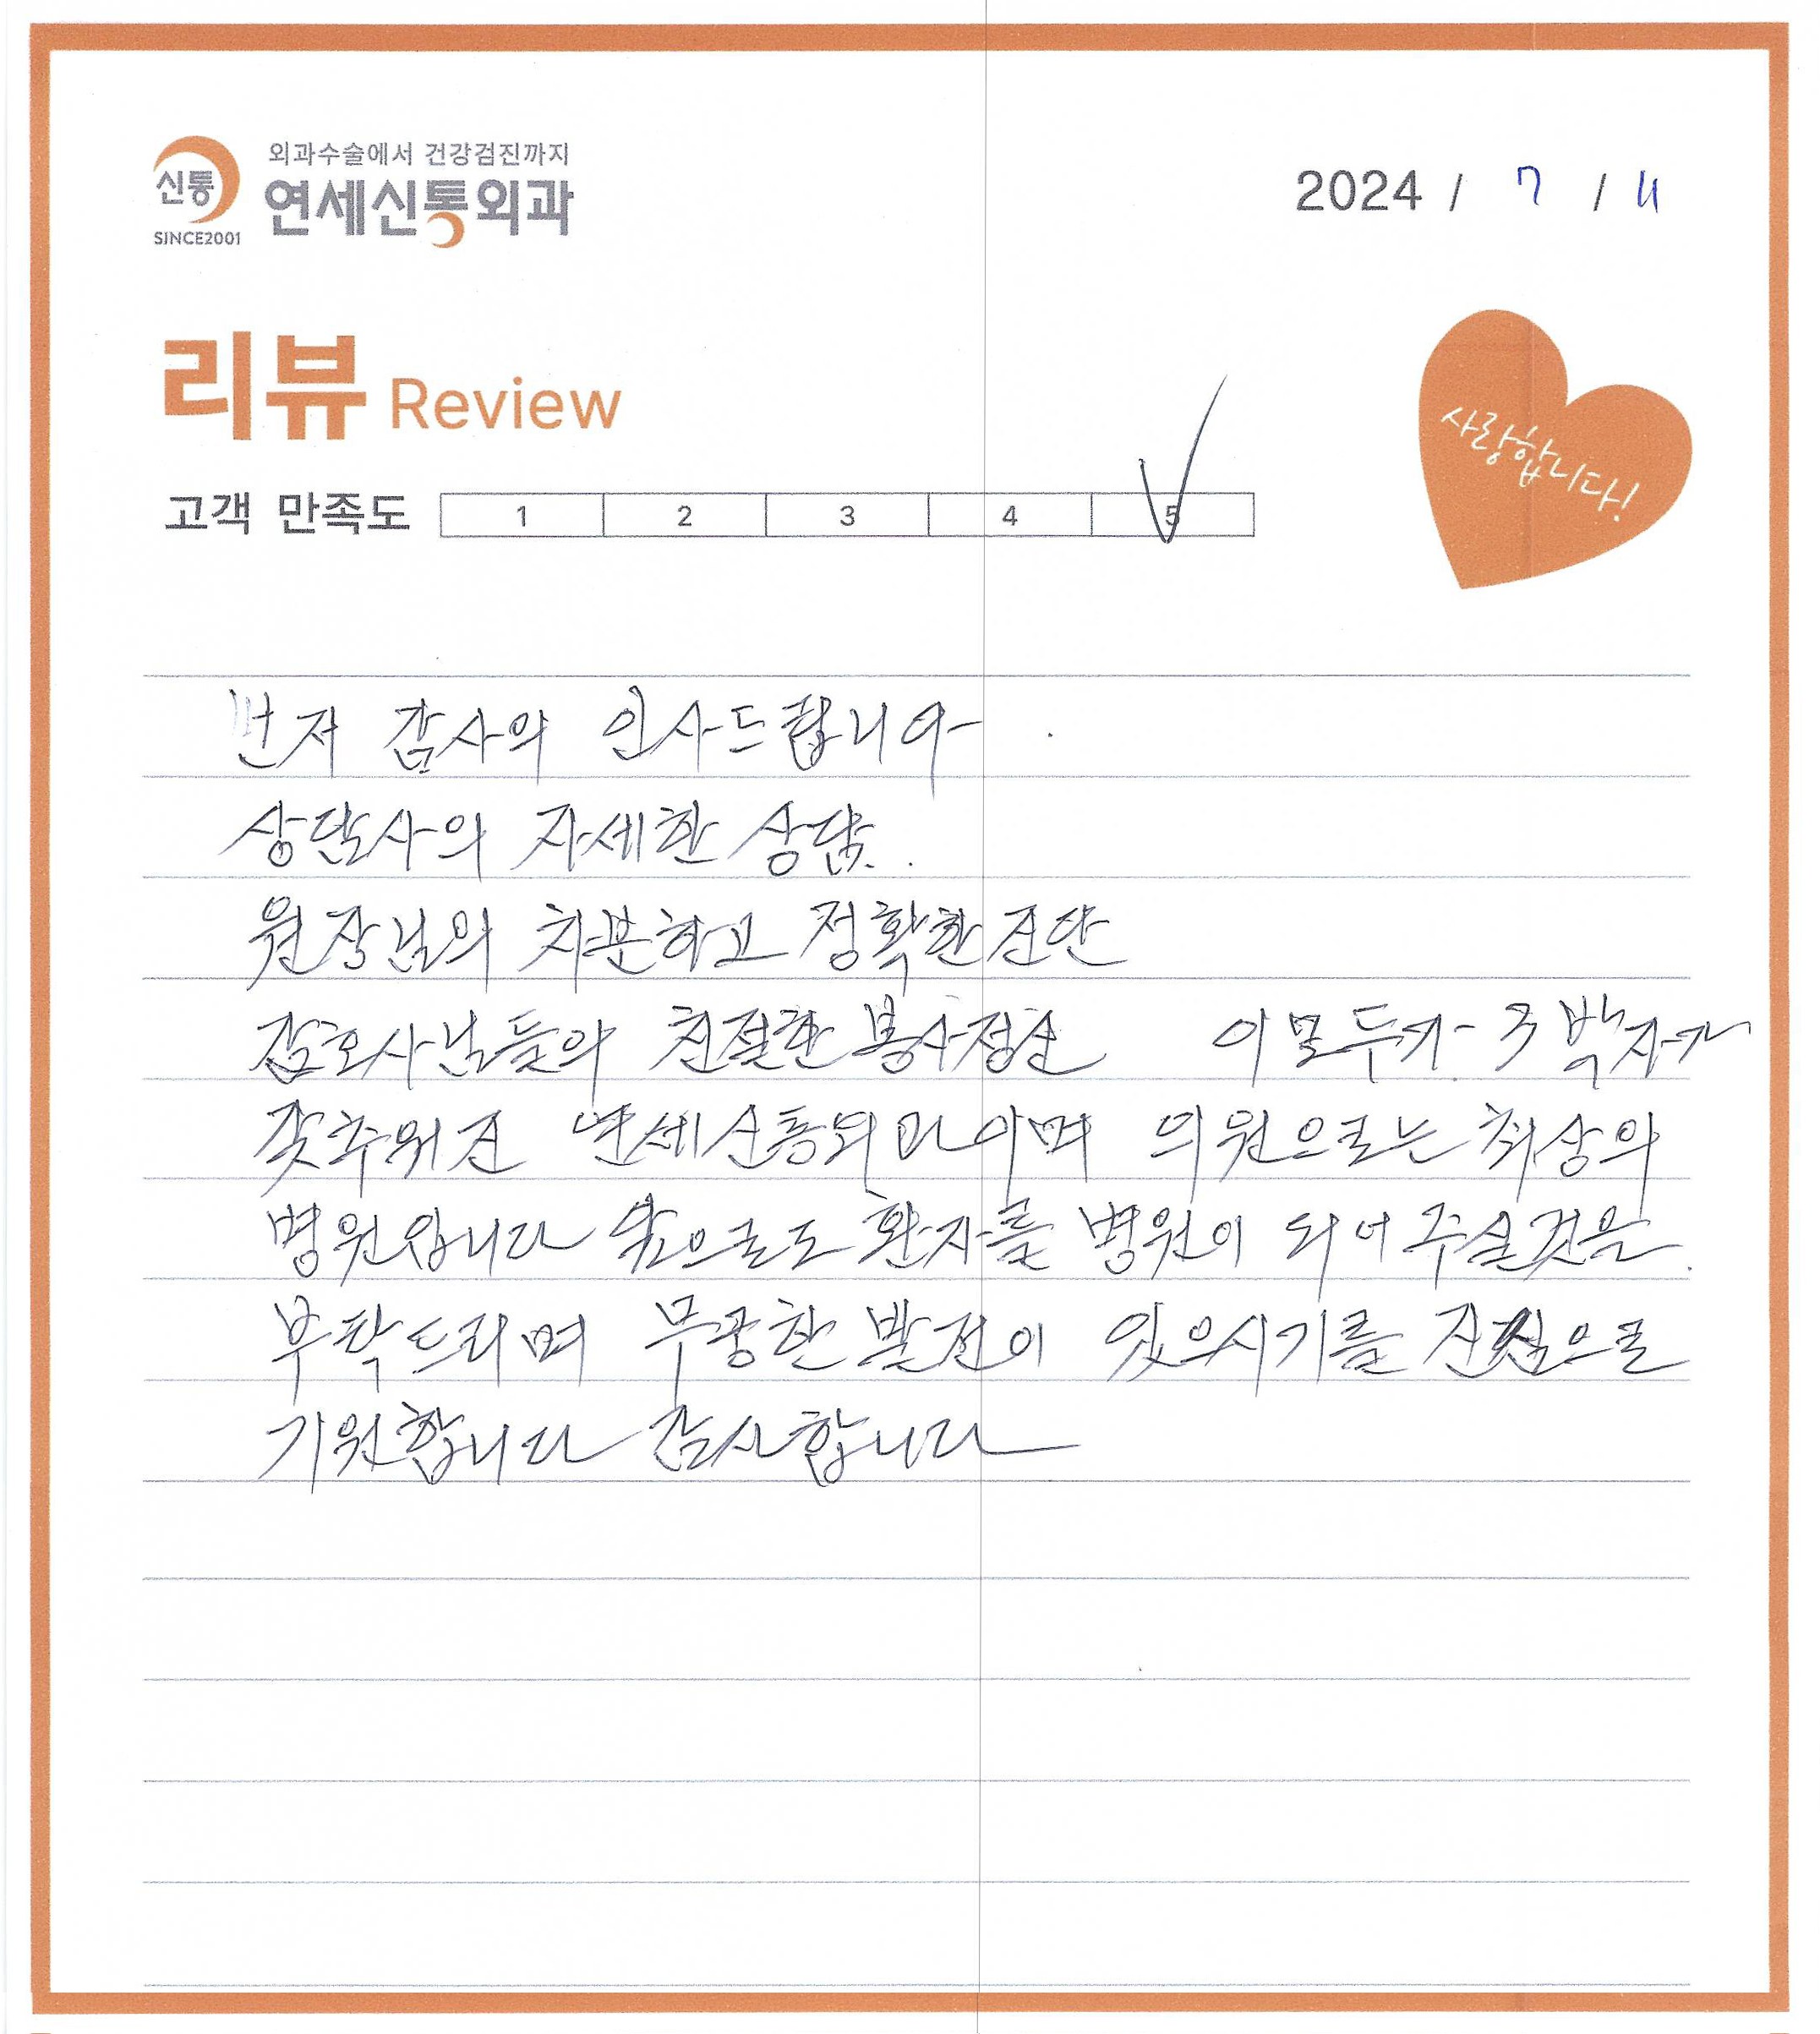 외과수술에서 건강검진까지
신통 연세신통외과
SINCE2001
2024 / 7 / 11
리뷰 Review
사랑합니다!
고객 만족도 1 2 3 4 5
먼저 감사의 인사드립니다.
상담사의 자세한 상담.
원장님의 차분하고 정확한 진단
간호사님들의 친절한 봉사정신 이 모두가 3박자가
갖추워진 연세신통외과이며 의원으로는 최상의
병원입니다 앞으로도 환자를 병원이 되어 주실것을.
부탁드리며 무궁한 발전이 있으시기를 진심으로
기원합니다 감사합니다